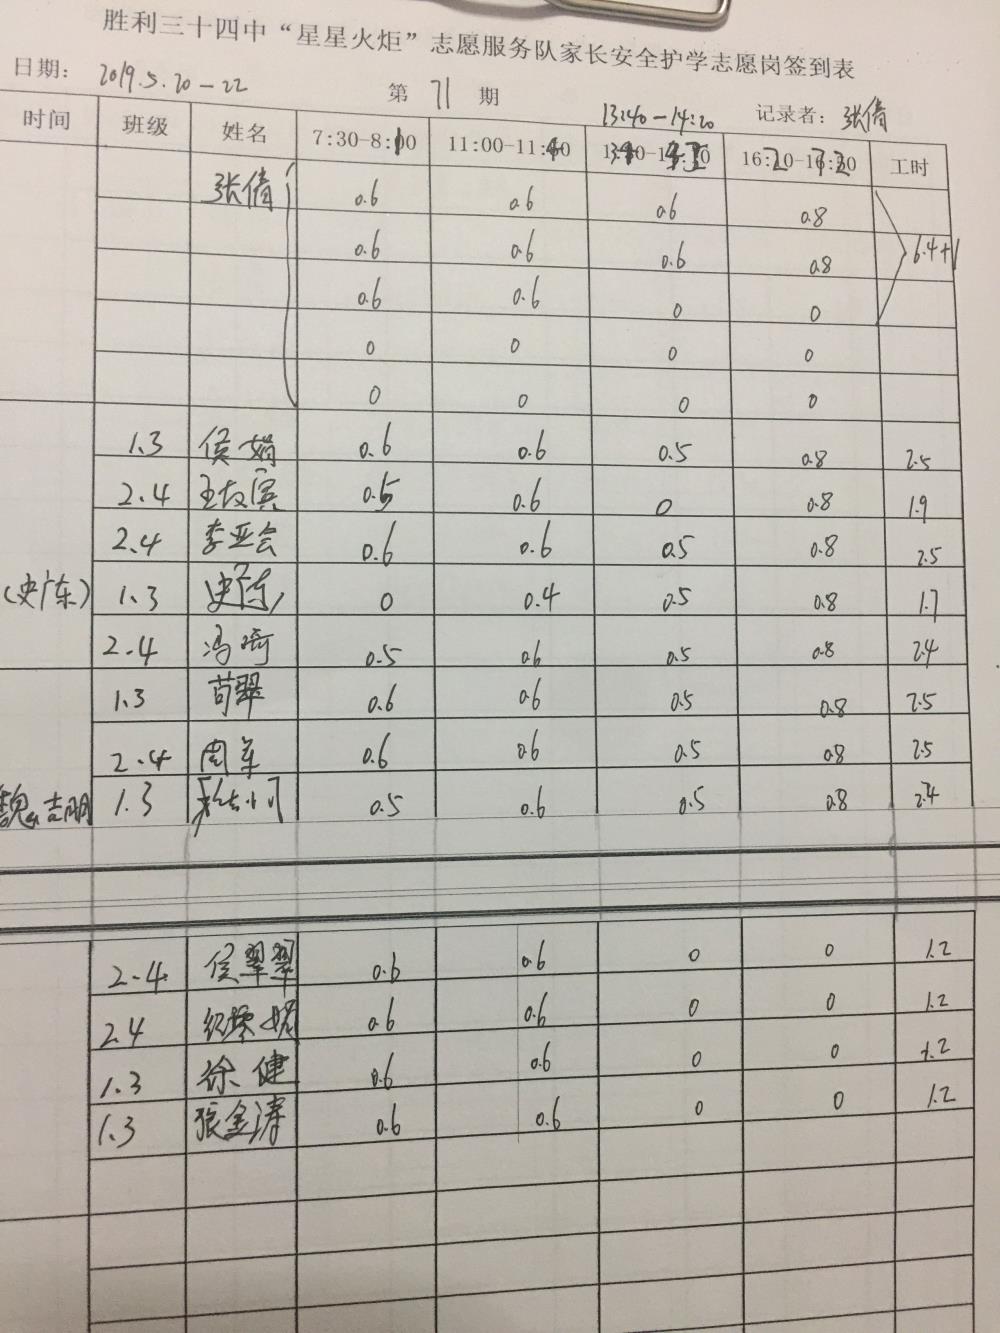 胜利三十四中“星星火炬”志愿服务队家长安全护学志愿岗签到表
日期： 2019.5.20-22 第 71 期 记录者：张倩
13:40-14:20
时间 班级 姓名 7:30-8:10 11:00-11:40 16:20-17:20 工时
张倩 0.6 0.6 0.6 0.8
0.6 0.6 0.6 0.8 6.4+1
0.6 0.6 0 0
0 0 0 0
0 0 0 0
1.3 侯娟 0.6 0.6 0.5 0.8 2.5
2.4 0.5 0.6 0 0.8 1.9
2.4 李亚会 0.6 0.6 0.5 0.8 2.5
(史广东) 1.3 0 0.4 0.5 0.8 1.7
2.4 冯 0.5 0.6 0.5 0.8 2.4
1.3 苟翠 0.6 0.6 0.5 0.8 2.5
2.4 周军 0.6 0.6 0.5 0.8 2.5
魏吉朋 1.3 0.5 0.6 0.5 0.8 2.4
2.4 侯翠翠 0.6 0.6 0 0 1.2
2.4 0.6 0.6 0 0 1.2
1.3 徐健 0.6 0.6 0 0 1.2
1.3 张金涛 0.6 0.6 0 0 1.2